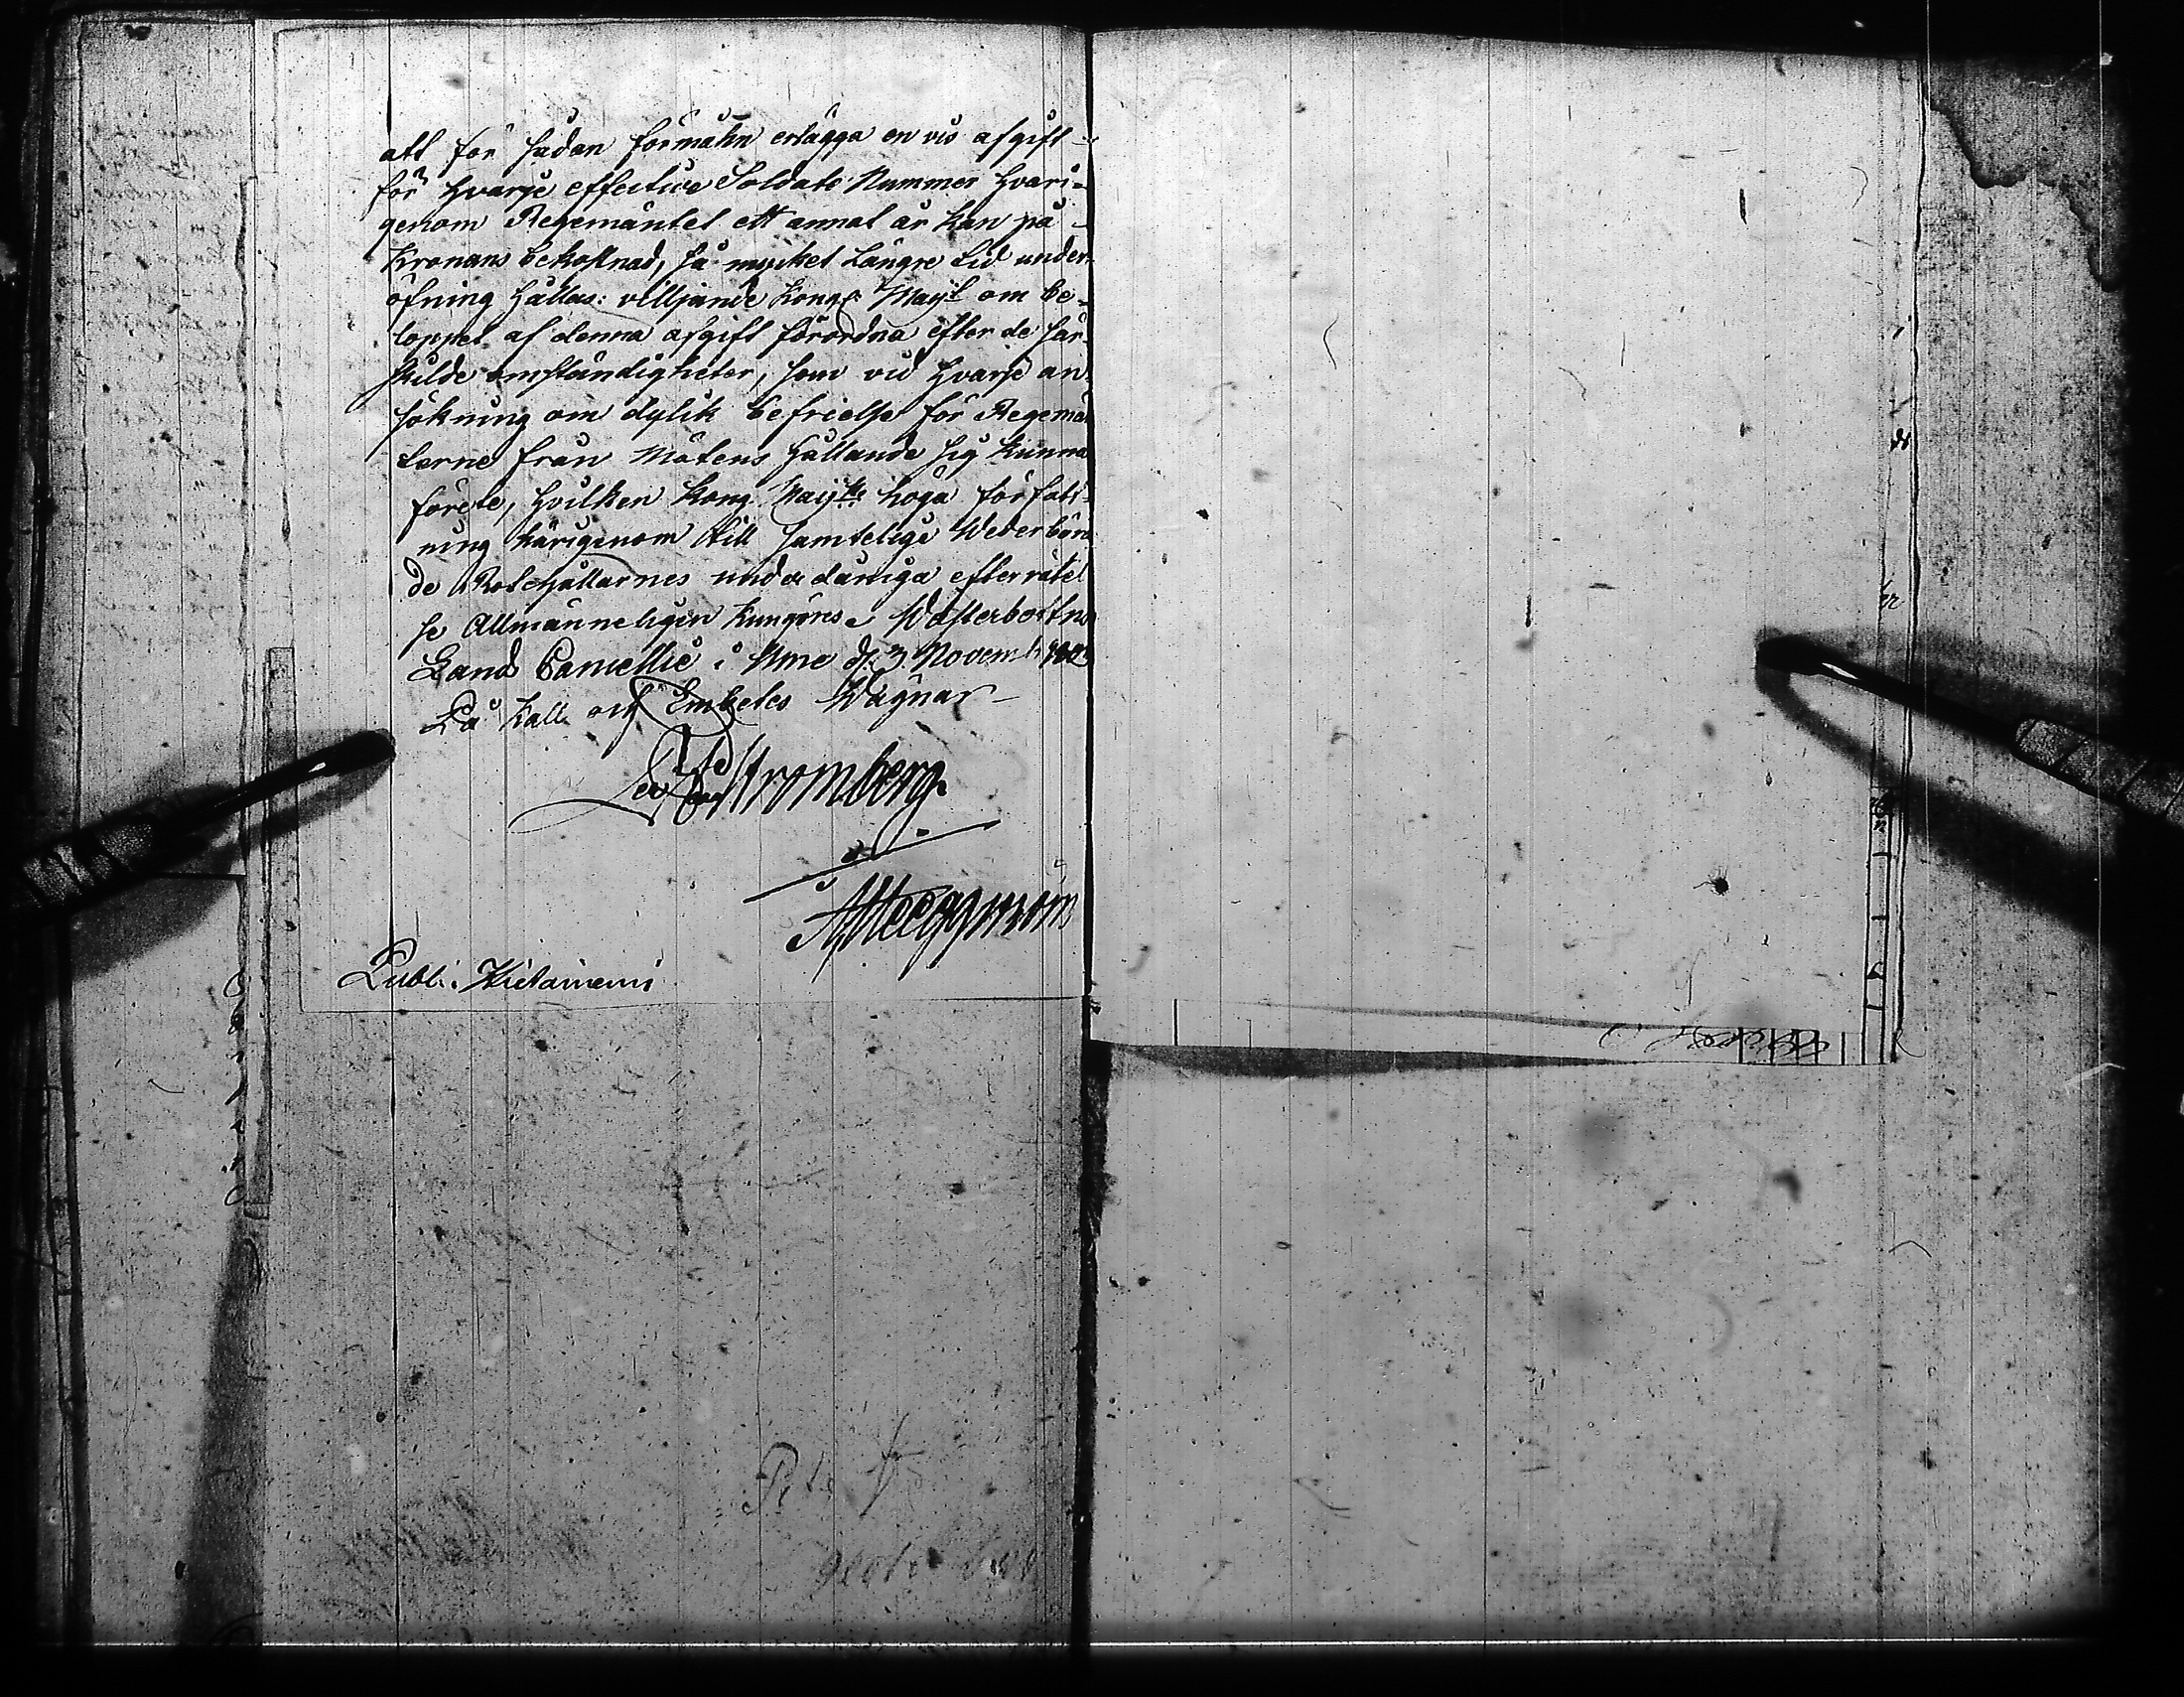 att för sådan förmåhn erlägga en vis afgift
för hvarje effective Soldate Nummer hvari-
genom Regemäntet ett annat år kan på
Kronans bekostnad, så mycket Längre tid under
öfning hållas: villjande Kongl Maij:t om be-
loppet af denna afgift förordna efter de sär-
skilde omständigheter, som vid hvarje an-
sökning om dylik befrielse för Regemän
terne från Mötens hållande sig kunna
förete, hvilken Kong. Maij:ts höga författ-
ning härigenom till samtelige Wederbörn
de Rotehållarnes underdåniga efterrättel
se Allmänneligen Kungöres. Wästerbottns
Lands Cancellie i Ume d. 3 Novemb
På Kall och Embetes Wägnar
Stromberg
Publ: Hietaniemi